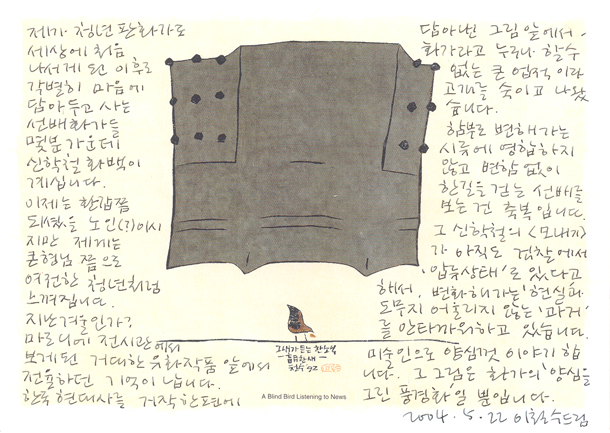 제가 청년 판화가로
세상에 처음
나서게 된 이후로
각별히 마음에
담아두고 사는
선배화가들
몇분 가운데
신학철 화백이
계십니다.
이제는 환갑쯤
되셨을 노인(?)이시
지만 제게는
큰형님 쯤으로
여전한 청년처럼
느껴집니다.
지난겨울인가?
마로니에 전시관에서
보게된 거대한 유화작품 앞에서
전율하던 기억이 납니다.
한국현대사를 거작 한편에
담아낸 그림 앞에서.
화가라고 누구나 할수
없는 큰 업적이라
고개를 숙이고 나왔
습니다.
함부로 변해가는
시류에 영합하지
않고 변함없이
한길을 걷는 선배를
보는건 축복입니다.
그 신학철의 <모내기>
가 아직도 검찰에서
'압류상태'로 있다고
해서. 변화해가는 '현실'과
도무지 어울리지 않는 '과거'
를 안타까워하고 있습니다.
미술인으로 양심껏 이야기 합
니다. 그 그림은 화가의 '양심'을
그린 풍경화'일 뿐입니다.
2004. 5. 22 이철수드림
철수 92
A Blind Bird Listening to News